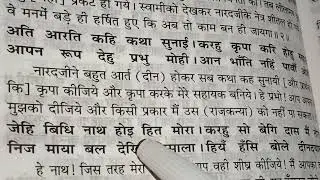 प्रकट हो गये। स्वामीको देखकर नारदजीके नेत्र शीतल
वे मनमें बड़े ही हर्षित हुए कि अब तो काम बन ही जायगा॥ २॥
अति आरति कहि कथा सुनाई। करहु कृपा करि होहु
आपन रूप देहु प्रभु मोही। आन भाँति नहिं पावौं
नारदजीने बहुत आर्त (दीन) होकर सब कथा कह सुनायी
कि] कृपा कीजिये और कृपा करके मेरे सहायक बनिये। हे प्रभो! आप
मुझको दीजिये और किसी प्रकार मैं उस (राजकन्या) को नहीं
जेहि बिधि नाथ होइ हित मोरा। करहु सो बेगि दास मैं
निज माया बल देखि हियँ हँसि बोले
हे नाथ! जिस तरह मेरा वही शीघ्र कीजिये। मैं